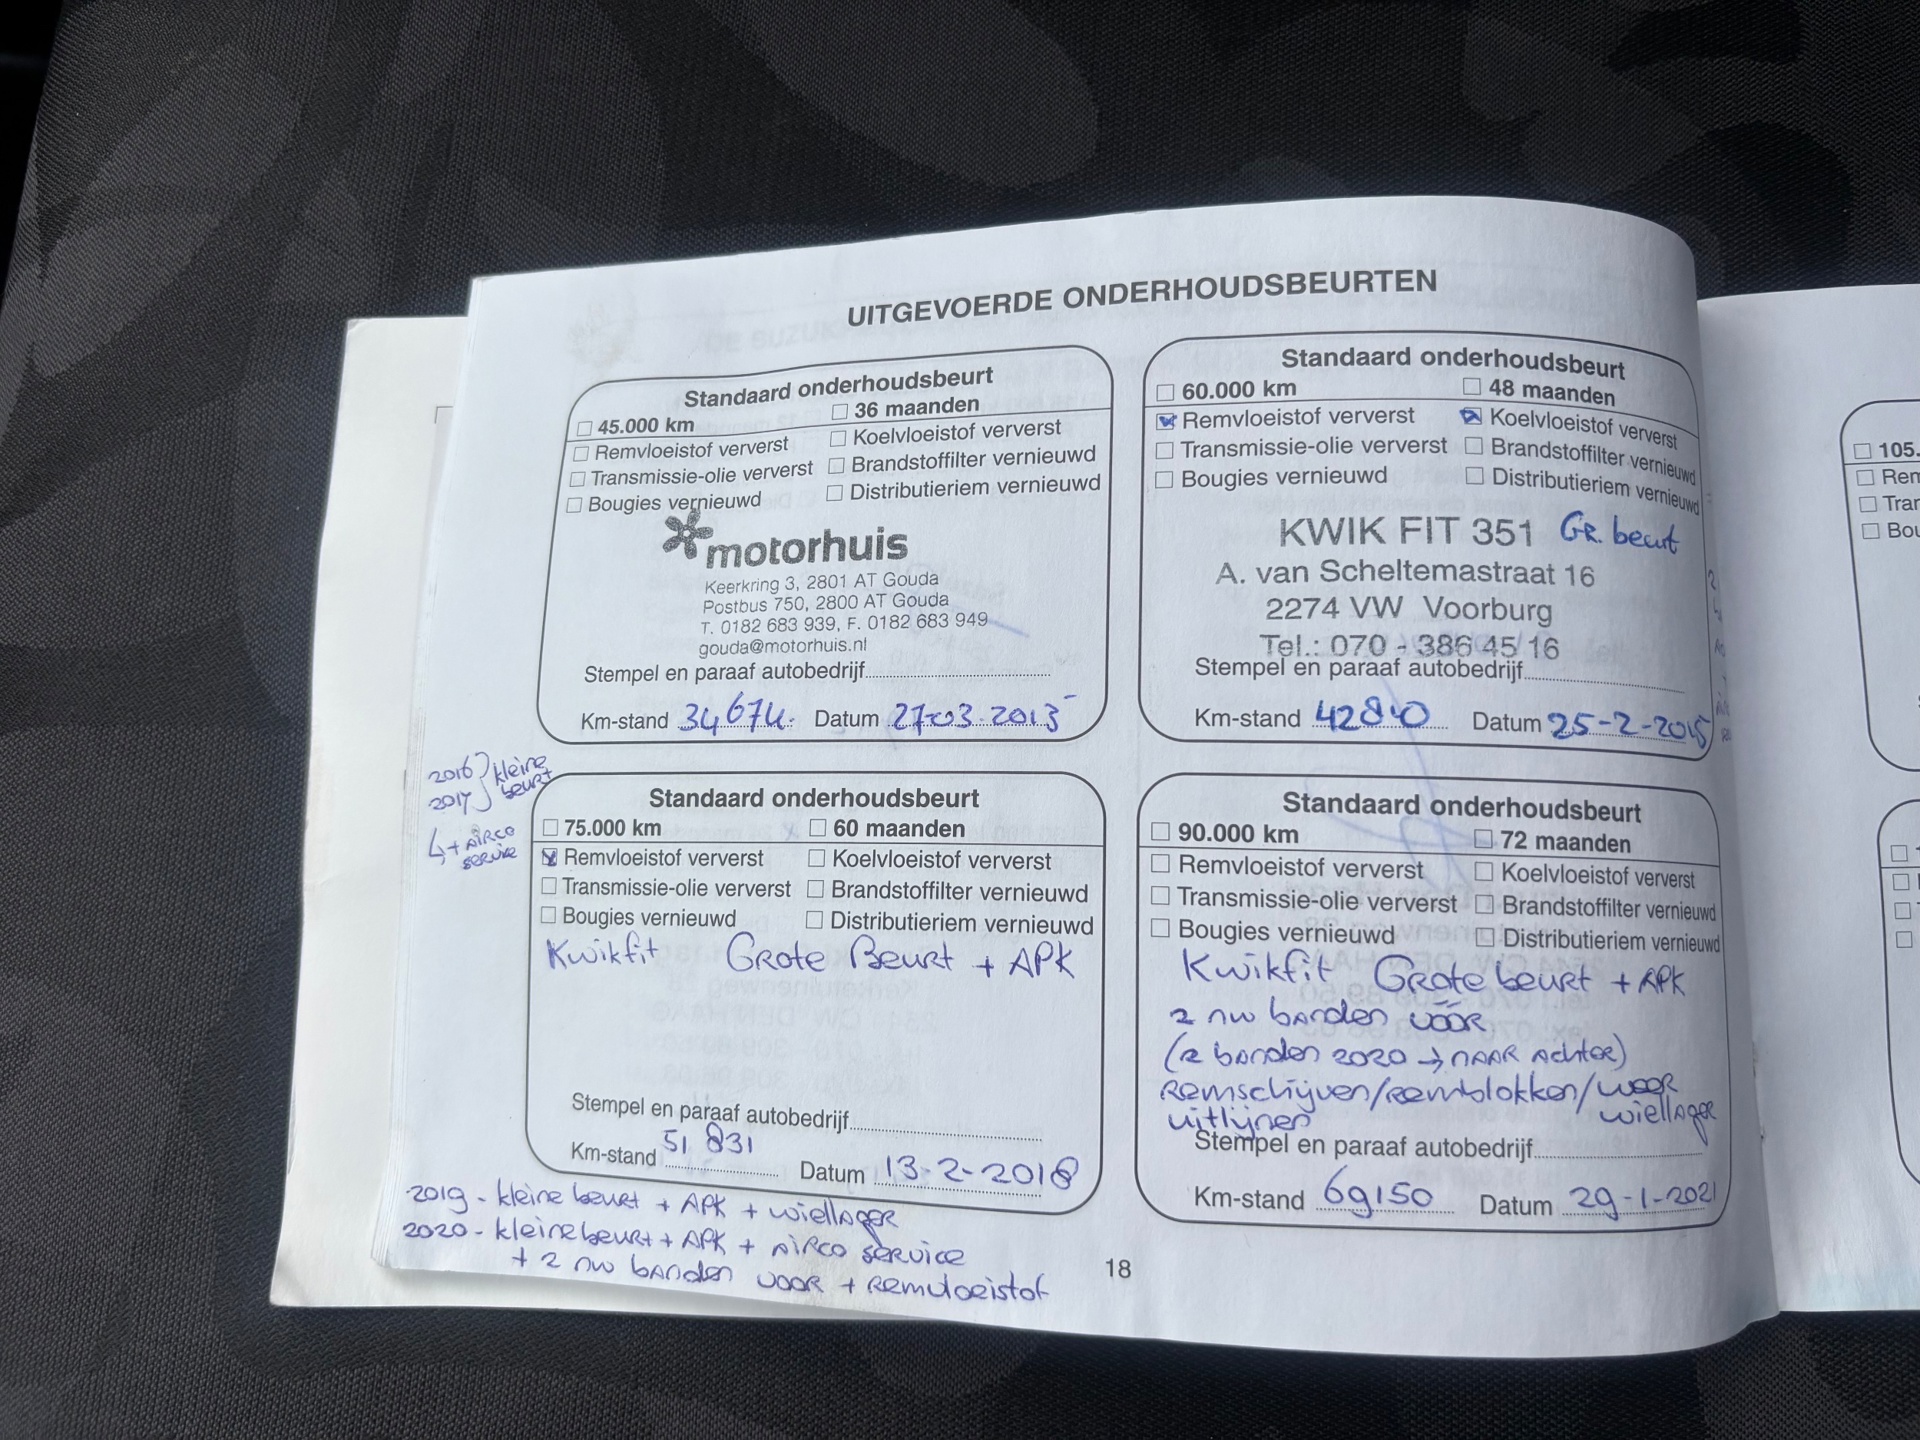 UITGEVOERDE ONDERHOUDSBEURTEN
Standaard onderhoudsbeurt
☐ 45.000 km ☐ 36 maanden
☐ Remvloeistof ververst ☐ Koelvloeistof ververst
☐ Transmissie-olie ververst ☐ Brandstoffilter vernieuwd
☐ Bougies vernieuwd ☐ Distributieriem vernieuwd
motorhuis
Keerkring 3, 2801 AT Gouda
Postbus 750, 2800 AT Gouda
T. 0182 683 939, F. 0182 683 949
gouda@motorhuis.nl
Stempel en paraaf autobedrijf
Km-stand 34674. Datum 27-03-2013
Standaard onderhoudsbeurt
☐ 60.000 km ☐ 48 maanden
☒ Remvloeistof ververst ☒ Koelvloeistof ververst
☐ Transmissie-olie ververst ☐ Brandstoffilter vernieuwd
☐ Bougies vernieuwd ☐ Distributieriem vernieuwd
KWIK FIT 351 GR. beurt
A. van Scheltemastraat 16
2274 VW Voorburg
Tel.: 070 - 386 45 16
Stempel en paraaf autobedrijf
Km-stand 42840 Datum 25-2-2015
2016 } kleine
2017 } beurt
↳ + AIRCO
service
Standaard onderhoudsbeurt
☐ 75.000 km ☐ 60 maanden
☒ Remvloeistof ververst ☐ Koelvloeistof ververst
☐ Transmissie-olie ververst ☐ Brandstoffilter vernieuwd
☐ Bougies vernieuwd ☐ Distributieriem vernieuwd
Kwikfit GROte BeuRt + APK
Stempel en paraaf autobedrijf
Km-stand 51 831 Datum 13-2-2018
2019 - kleine beurt + APK + wiellAgeR
2020 - kleine beurt + APK + AiRco seRvice
+ 2 nw bAnden vooR + Remvloeistof
Standaard onderhoudsbeurt
☐ 90.000 km ☐ 72 maanden
☐ Remvloeistof ververst ☐ Koelvloeistof ververst
☐ Transmissie-olie ververst ☐ Brandstoffilter vernieuwd
☐ Bougies vernieuwd ☐ Distributieriem vernieuwd
Kwikfit GRote beurt + APK
2 nw bAnden vóóR
(2 banden 2020 → nAAR AchteR)
Remschijven/Remblokken/weeR
uitlijnen wiellAgeR
Stempel en paraaf autobedrijf
Km-stand 69150 Datum 29-1-2021
18
☐ 105.
☐ Rem
☐ Tran
☐ Bou